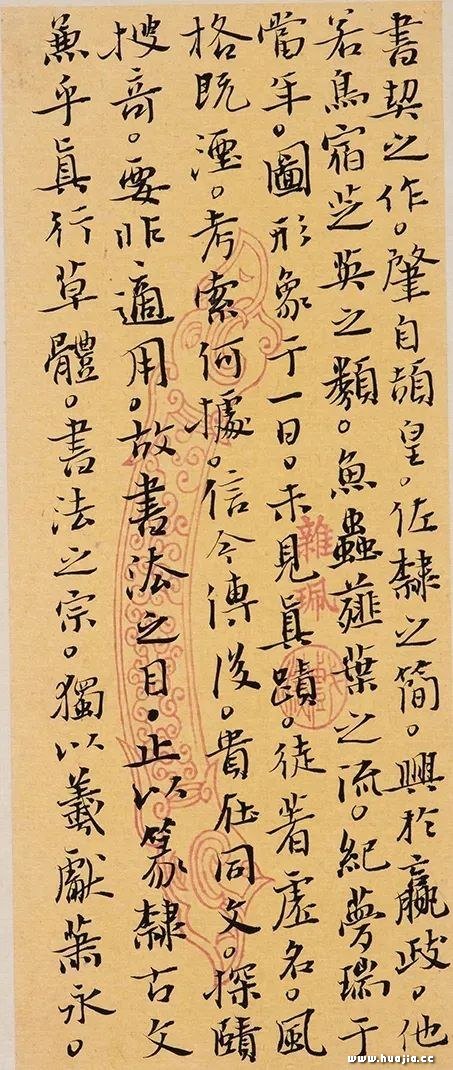 書契之作。肇自頡皇。佐隸之簡。興於嬴政。他
若鳥宿芝英之類。魚蟲薤葉之流。紀夢瑞于
當年。圖形象于一日。未見真蹟。徒著虛名。風
格既湮。考索何據。信今傳後。貴在同文。探賾
搜奇。要非適用。故書法之目。止以篆隸古文
兼乎真行草體。書法之宗。獨以羲獻蕭永。
雜珮
www.huajia.cc